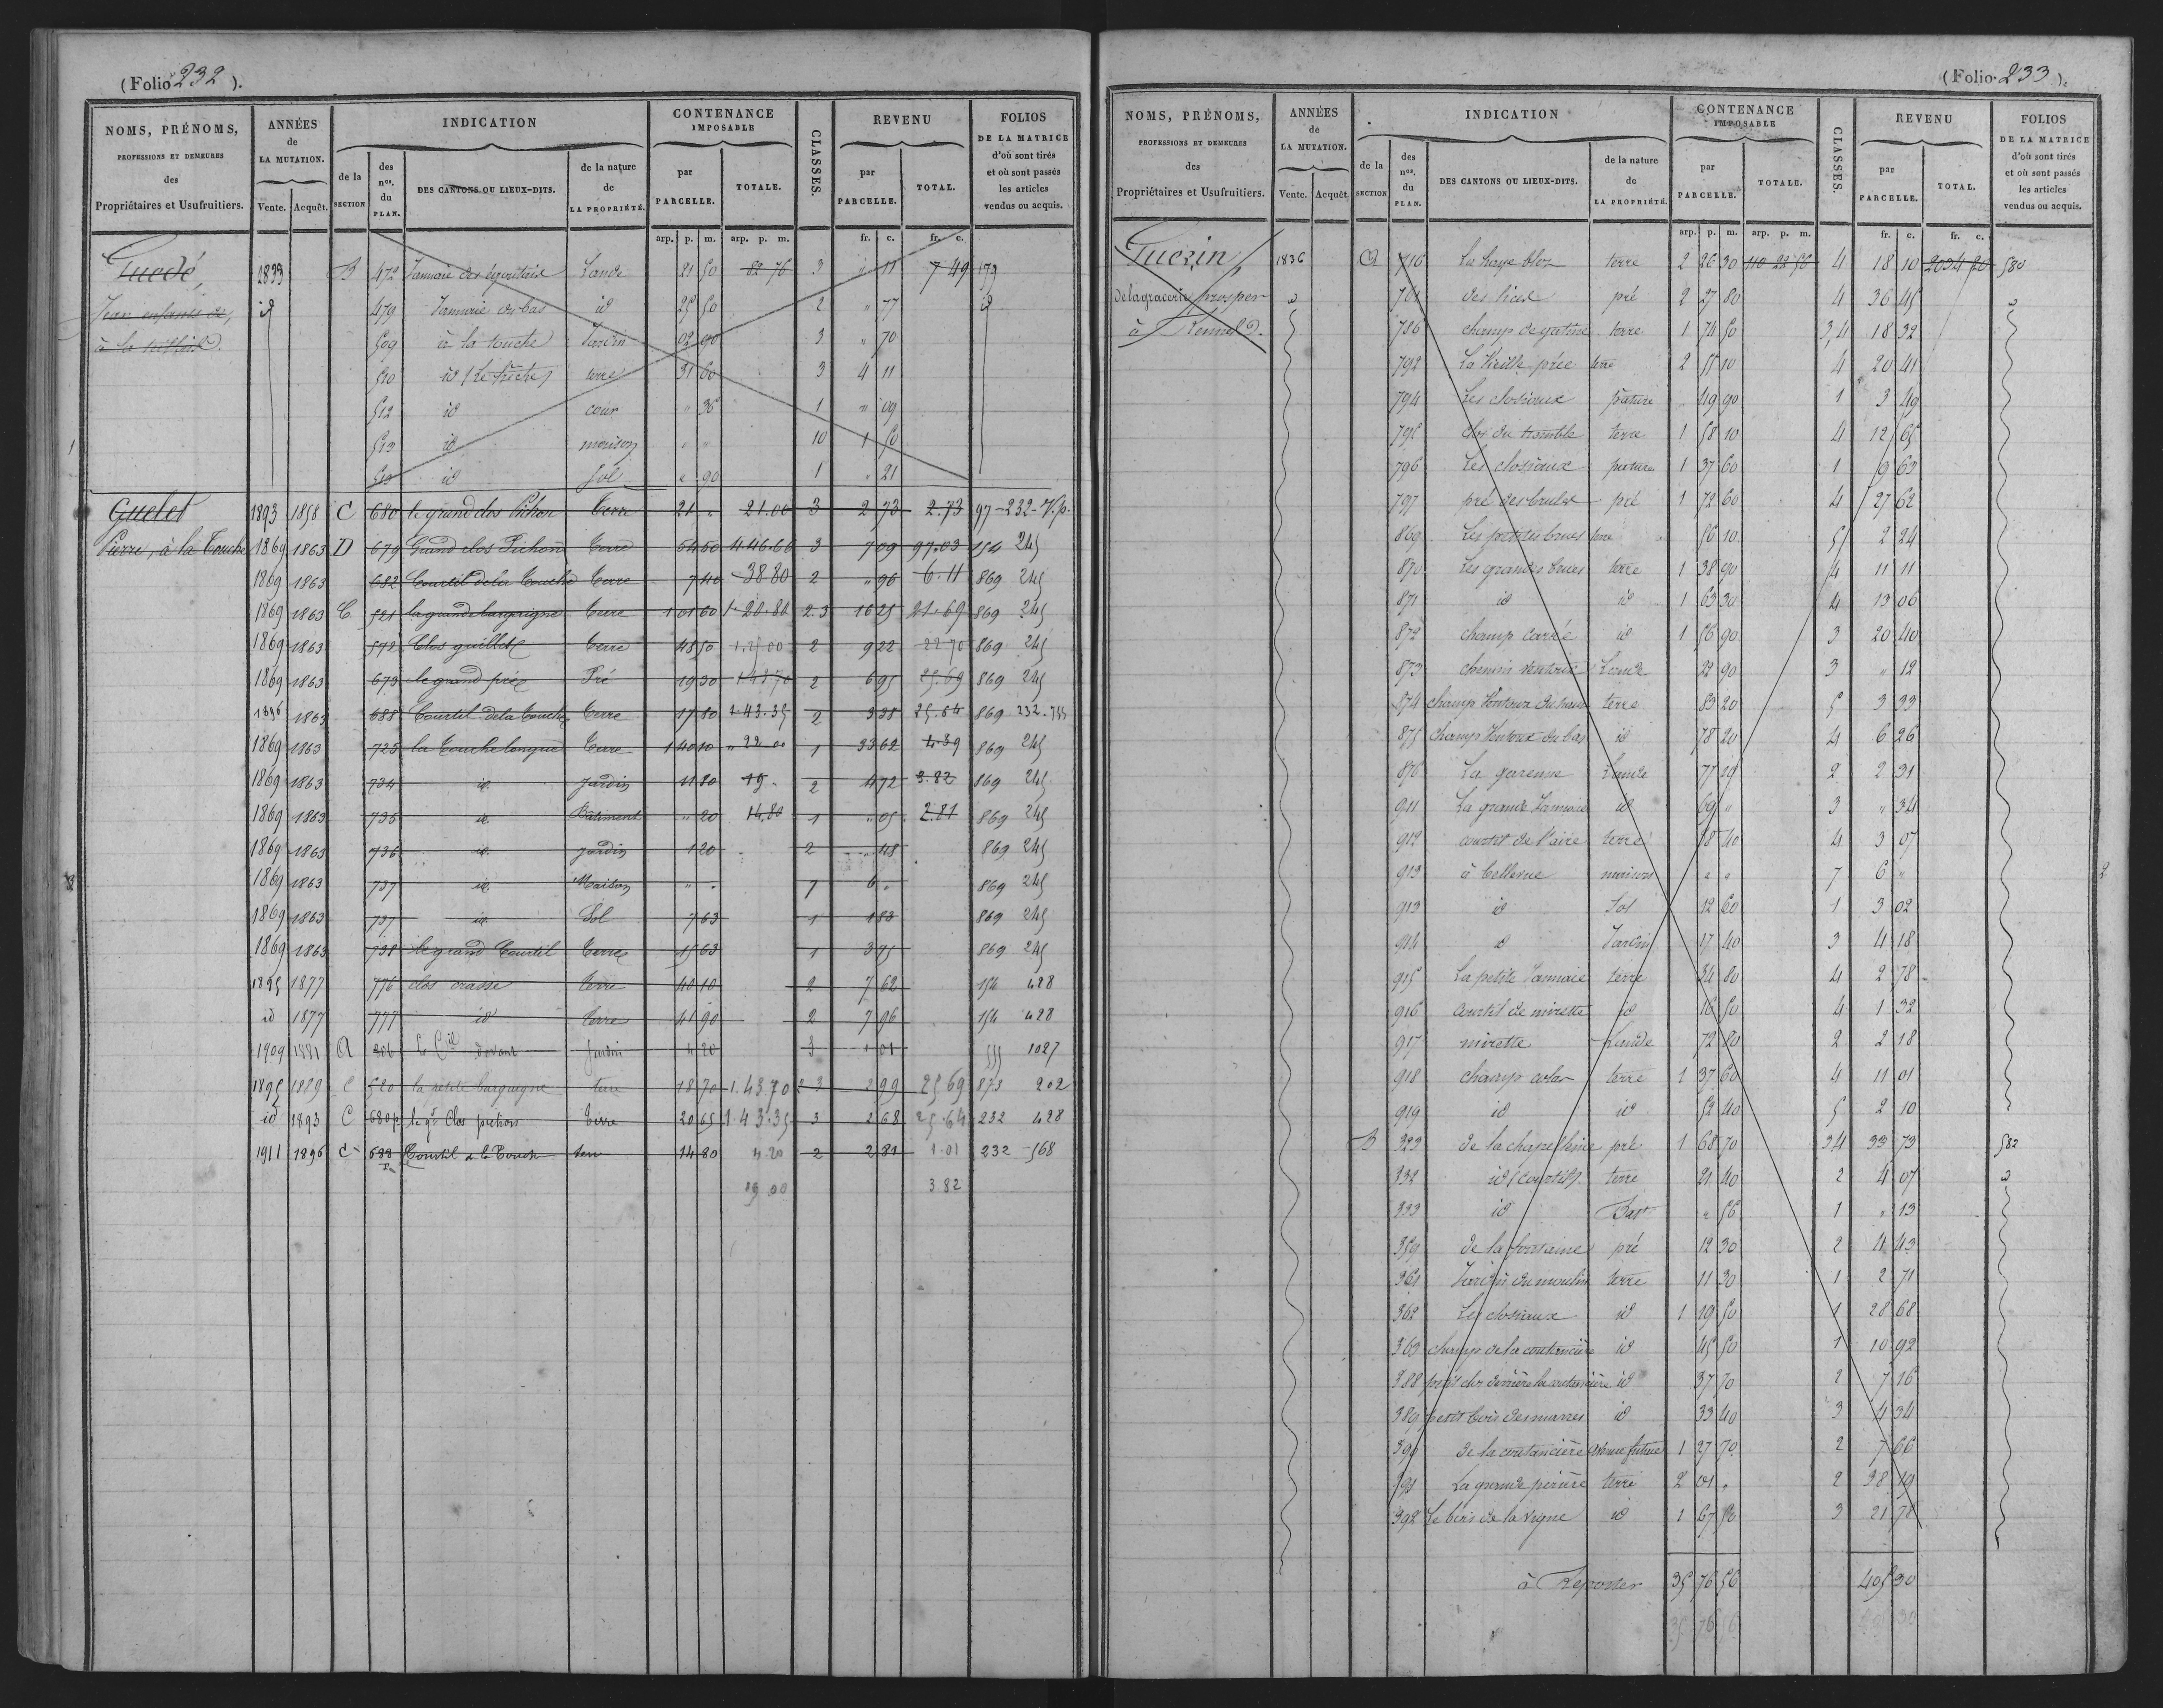 (Folio 232).
NOMS, PRÉNOMS, PROFESSIONS ET DEMEURES des Propriétaires et Usufruitiers.
ANNÉES de LA MUTATION. Vente. Acquêt.
INDICATION de la SECTION des nos. du PLAN. DES CANTONS OU LIEUX-DITS. de la nature de LA PROPRIÉTÉ.
CONTENANCE IMPOSABLE par PARCELLE. TOTALE.
CLASSES.
REVENU par PARCELLE. TOTAL.
FOLIOS DE LA MATRICE d'où sont tirés et où sont passés les articles vendus ou acquis.
arp. p. m. arp. p. m. fr. c. fr. c.
Guedé, 1833 B 472 Lande 21 50 82 76 3 " 11 7 49 179
Jean enfants de, id 479 Jannaie du bas id 25 50 2 " 77 id
à la 509 à la touche Jardin 02 90 3 " 70
510 id (Le friche) terre 31 60 3 4 11
512 id cour " 36 1 " 09
513 id maison " " 10 1 50
513 id Sol " 90 1 " 21
Guelet 1893 1858 C 680 le grand clos Pichon Terre 21 " 21.00 3 2 73 2.73 97-232-V.p.
Pierre, à la Touche 1869 1863 D 679 Grand clos Pichon Terre 54 50 4.46.60 3 7 09 97.03 154 245
1869 1863 682 Courtil de la Touche Terre 7 40 38.80 2 " 96 6.11 869 245
1869 1863 C 521 la grande bargaigne Terre 1 01 60 1.20.80 2.3 16 25 21.69 869 245
1869 1863 572 Clos guillet Terre 48 50 1.25.00 2 9 22 22 70 869 245
1869 1863 673 le grand pré Pré 19 30 1.43.70 2 6 95 25.69 869 245
1896 1863 688 Courtil de la Touche Terre 17 80 1.43.35 2 3 38 25.64 869 232-
1869 1863 725 la Touche longue Terre 1 40 10 " 22.00 1 33 62 4.39 869 245
1869 1863 734 id. Jardin 11 80 19. 2 4 72 3.82 869 245
1869 1863 735 id. Batiment " 20 14.80 1 " 05 2.81 869 245
1869 1863 736 id. jardin 1 20 2 " 48 869 245
1869 1863 737 id. Maison " " 7 6 " 869 245
1869 1863 737 id. Sol 7 63 1 1 83 869 245
1869 1863 738 le grand Courtil Terre 15 63 1 3 75 869 245
1895 1877 776 clos crasse terre 40 10 2 7 62 154 428
id 1877 777 id terre 41 90 2 7 96 154 428
1909 1881 A 206 Le Ctil devant Jardin 4 20 3 1 01 555 1027
1895 1889 C 520 la petite bargaigne terre 18 70 1.43.70 2 3 2 99 25 69 873 202
id 1893 C 680p le gd Clos pichon terre 20 65 1.43.35 3 2 68 25.64 232 428
1911 1896 C 688 p Courtil de la Touche terre 14 80 4.20 2 2 81 1.01 232 568
19 00 3 82
(Folio 233).
NOMS, PRÉNOMS, PROFESSIONS ET DEMEURES des Propriétaires et Usufruitiers.
ANNÉES de LA MUTATION. Vente. Acquêt.
INDICATION de la SECTION des nos. du PLAN. DES CANTONS OU LIEUX-DITS. de la nature de LA PROPRIÉTÉ.
CONTENANCE IMPOSABLE par PARCELLE. TOTALE.
CLASSES.
REVENU par PARCELLE. TOTAL.
FOLIOS DE LA MATRICE d'où sont tirés et où sont passés les articles vendus ou acquis.
arp. p. m. arp. p. m. fr. c. fr. c.
Guerin, 1836 A 710 La haye terre 2 26 30 110 22 56 4 18 10 2034 20 580
delagracerie prosper id 761 des lices pré 2 27 80 4 36 45 id
à Rennes. 786 champ de gatine terre 1 74 50 3,4 18 32
792 La Vieille prée terre 2 55 10 4 20 41
794 Les closiaux pature 49 90 1 3 49
795 clos du tremble terre 1 58 10 4 12 65
796 Les closiaux pature 1 37 60 1 9 63
797 pré des brulés pré 1 72 60 4 27 62
869 Les petites brues terre 56 10 5 2 24
870 Les grandes brues terre 1 38 90 4 11 11
871 id id 1 63 30 4 13 06
872 champ carré id 1 56 90 3 20 40
873 chemin Lande 22 90 3 " 12
874 champ Ventoux du haut terre 83 20 5 3 33
875 champ Ventoux du bas id 78 20 4 6 26
876 La garenne Lande 77 2 2 31
911 La grande Jannaie id 69 " 3 " 34
912 courtil de l'aire terre 38 40 4 3 07
913 à bellevue maison " " 7 6 "
913 id Sol 12 60 1 3 02
914 id Jardin 17 40 3 4 18
915 La petite Jannaie terre 34 80 4 2 78
916 courtil de mirette id 16 50 4 1 32
917 mirette Lande 72 80 2 2 18
918 champ colas terre 1 37 60 4 11 01
919 id id 52 40 5 2 10
B 323 de la chapellenie pré 1 68 70 3 4 33 73 582
332 id (courtil) terre 21 40 2 4 07 id
333 id Bast " 56 1 " 13
359 de la fontaine pré 12 30 2 4 43
361 Jardin du moulin terre 11 30 1 2 71
362 Les closiaux id 1 19 50 1 28 68
363 champ de la coutancière id 45 50 1 10 92
388 petit clos derrière la coutancière id 37 70 2 7 16
389 petit bois des marres id 33 40 3 4 34
390 de la coutancière 1 27 70 2 7 66
391 La grande perière terre 2 01 " 2 38 19
392 Le bois de la vigne id 1 67 50 3 21 78
à Reporter 35 76 56 405 30
35 76 56